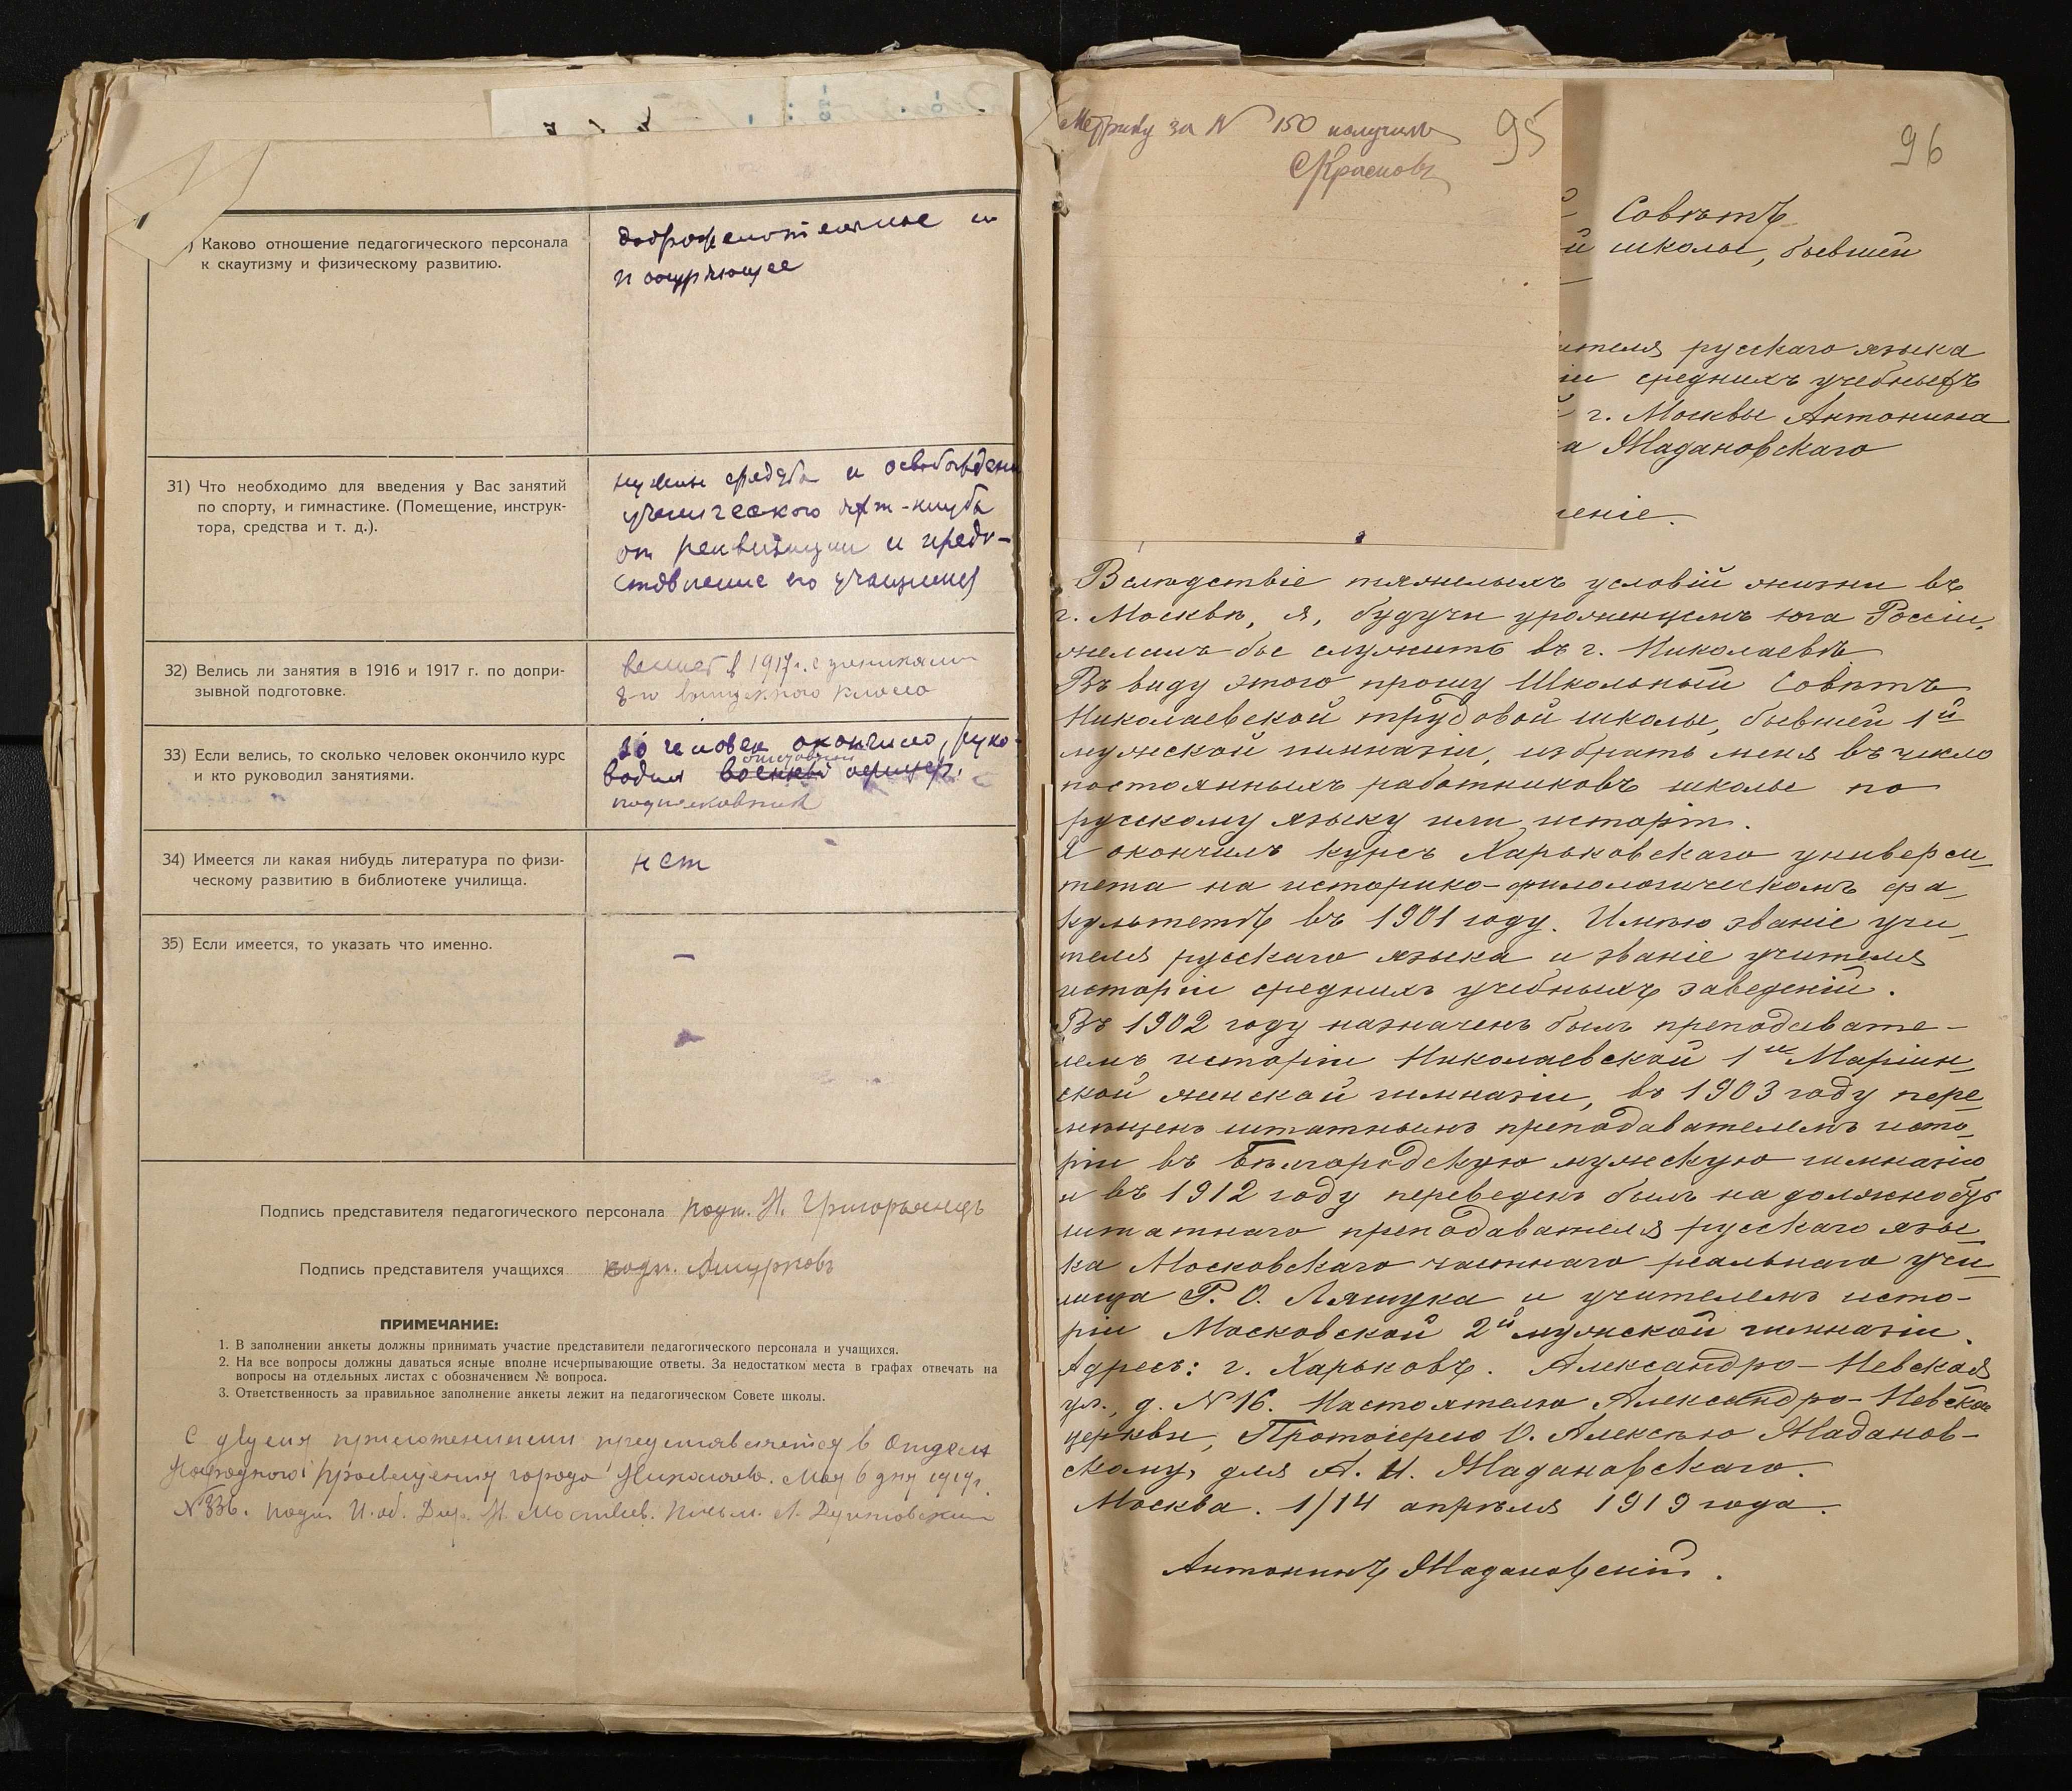 ) Каково отношение педагогического персонала
к скаутизму и физическому развитию.
доброжелательное и
поощряющее
31) Что необходимо для введения у Вас занятий
по спорту, и гимнастике. (Помещение, инструк-
тора, средства и т. д.).
нужны средства и освобождение
ученического яхт-клуба
от реквизиции и предо-
ставление его учащимся
32) Велись ли занятия в 1916 и 1917 г. по допри-
зывной подготовке.
велись в 1917 г. с учениками
8-го выпускного класса
33) Если велись, то сколько человек окончило курс
и кто руководил занятиями.
человек окончило, руко-
водил военный офицер.
подполковник
34) Имеется ли какая нибудь литература по физи-
ческому развитию в библиотеке училища.
нет
35) Если имеется, то указать что именно.
–
Подпись представителя педагогического персонала подп. Н. Григорьянцъ
Подпись представителя учащихся подп. Ашурковъ
ПРИМЕЧАНИЕ:
1. В заполнении анкеты должны принимать участие представители педагогического персонала и учащихся.
2. На все вопросы должны даваться ясные вполне исчерпывающие ответы. За недостатком места в графах отвечать на
вопросы на отдельных листах с обозначением № вопроса.
3. Ответственность за правильное заполнение анкеты лежит на педагогическом Совете школы.
С двумя приложениями представляется в Отдел
Народного Просвещения города Николаева. Мая 6 дня 1919 г.
№ 336. подп. И. об. Дир. Н.
Метрику за № 150 получилъ
СКрасновъ
95
96
Совѣтъ
й школы, бывшей
ителя русскаго языка
іи среднихъ учебныхъ
г. Москвы Антонина
а Жадановскаго
леніе.
Вслѣдствіе тяжелыхъ условій жизни въ
г. Москвѣ, я, будучи уроженцемъ юга Россіи,
желалъ бы служить въ г. Николаевѣ
Въ виду этого прошу Школьный Совѣтъ
Николаевской трудовой школы, бывшей 1й
мужской гимназіи, избрать меня въ число
постоянныхъ работниковъ школы по
русскому языку или исторіи.
Я окончилъ курсъ Харьковскаго универси-
тета на историко-филологическомъ фа-
культетѣ въ 1901 году. Имѣю званіе учи-
теля русскаго языка и званіе учителя
исторіи среднихъ учебныхъ заведеній.
Въ 1902 году назначенъ былъ преподавате-
лемъ исторіи Николаевской 1й Маріин-
ской женской гимназіи, въ 1903 году пере-
мѣщенъ штатнымъ преподавателемъ исто-
ріи въ Бѣлгородскую мужскую гимназію
и въ 1912 году переведенъ былъ на должность
штатнаго преподавателя русскаго язы-
ка Московскаго частнаго реальнаго учи-
лища Р. О. Ляшука и учителемъ исто-
ріи Московской 2й мужской гимназіи.
Адресъ: г. Харьковъ. Александро-Невская
ул., д. № 16. Настоятелю Александро-Невской
церкви, Протоіерею О. Алексѣю Жаданов-
скому, для А. И. Жадановскаго.
Москва. 1/14 апрѣля 1919 года.
Антонинъ Жадановскій.